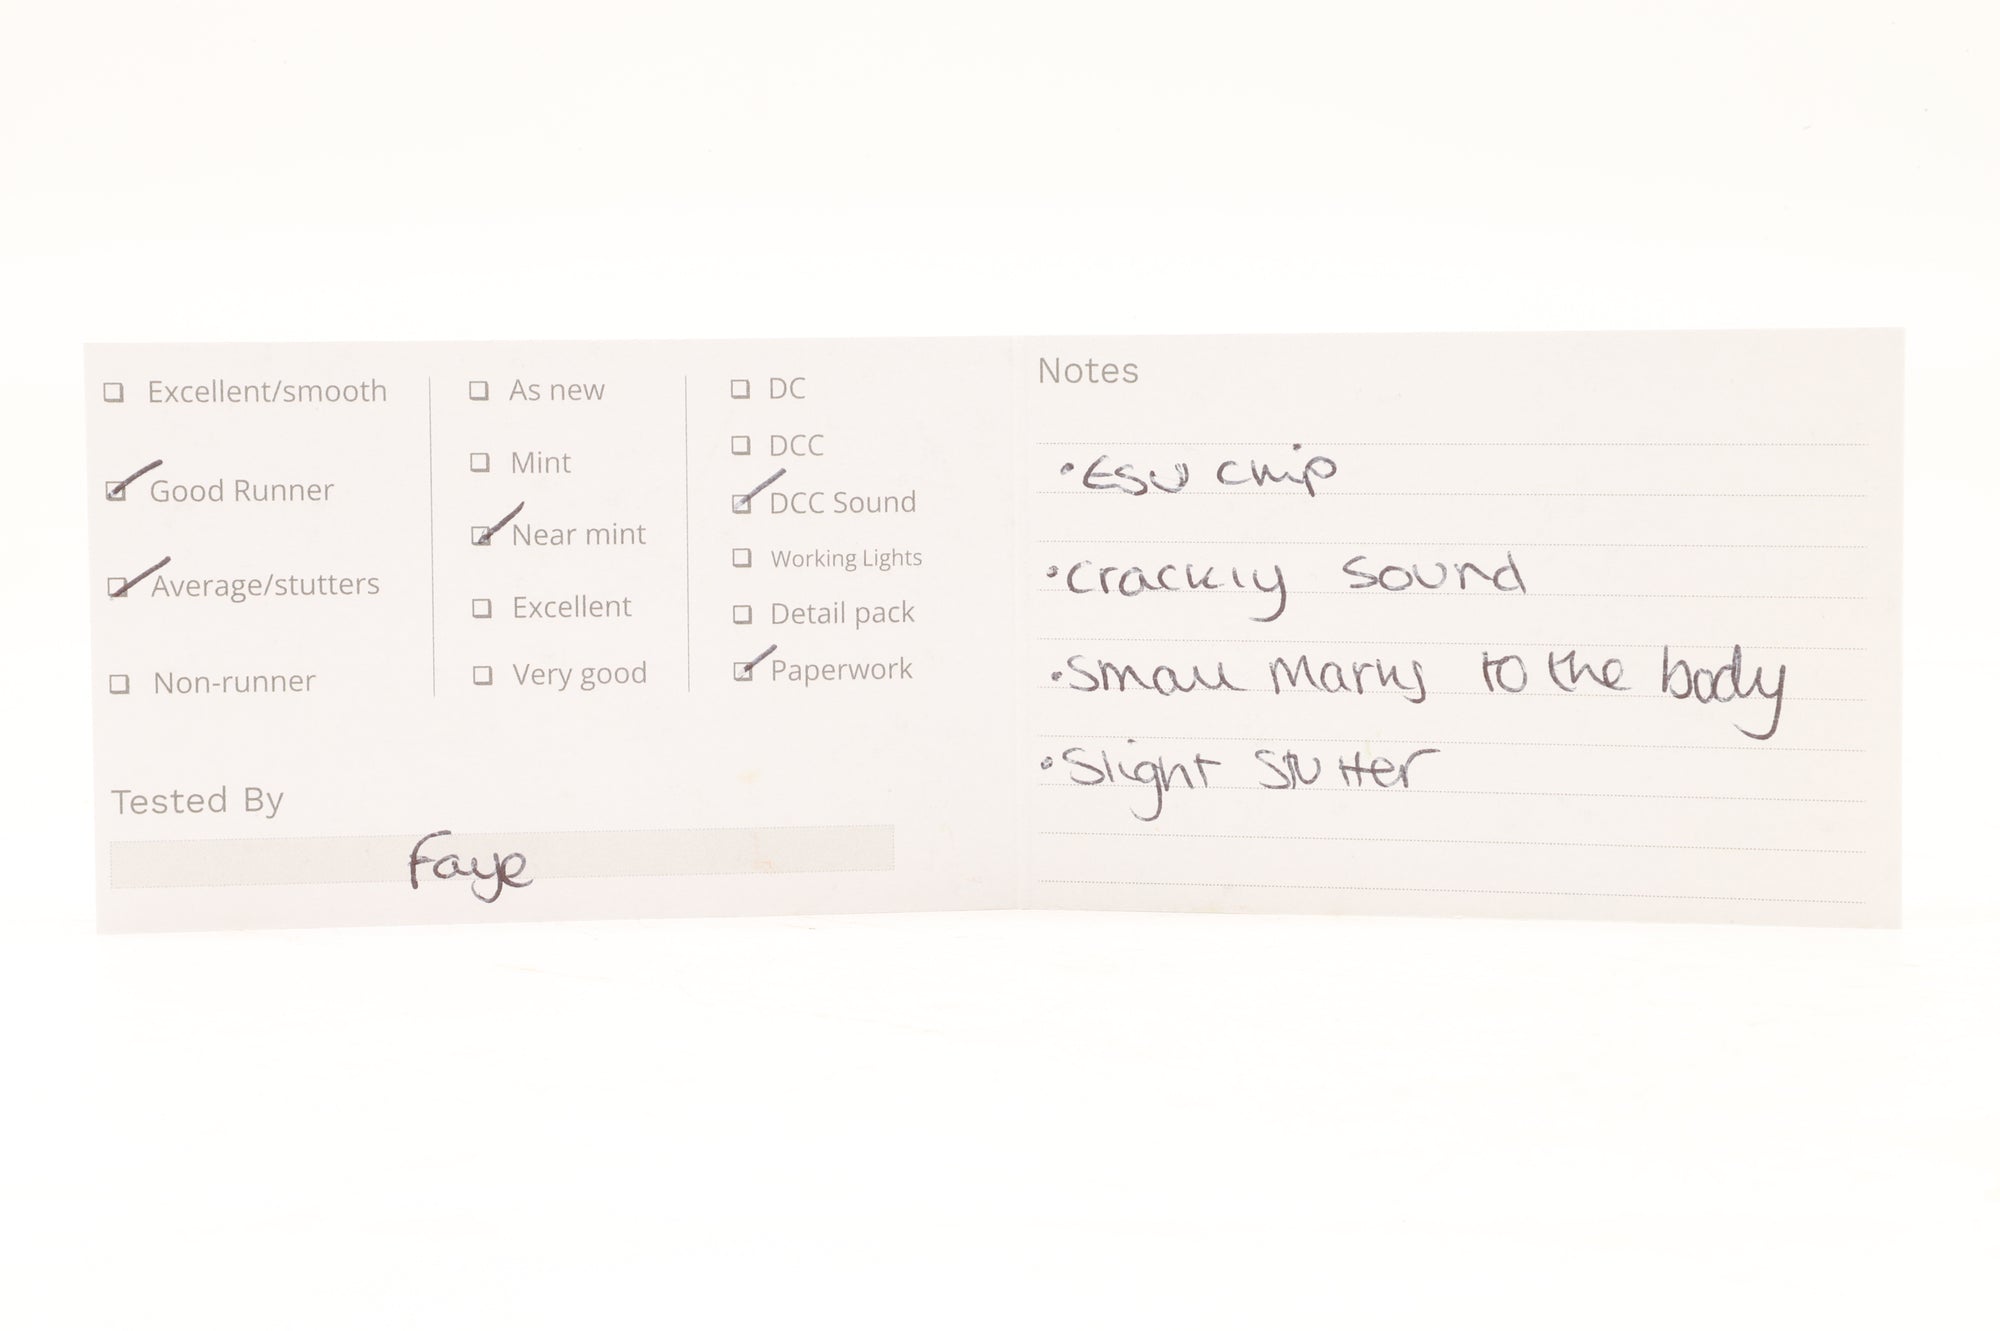 Excellent/smooth
Good Runner
Average/stutters
Non-runner
As new
Mint
Near mint
Excellent
Very good
DC
DCC
DCC Sound
Working Lights
Detail pack
Paperwork
Tested By
Faye
Notes
• ESU chip
• crackly sound
• small marks to the body
• slight stutter